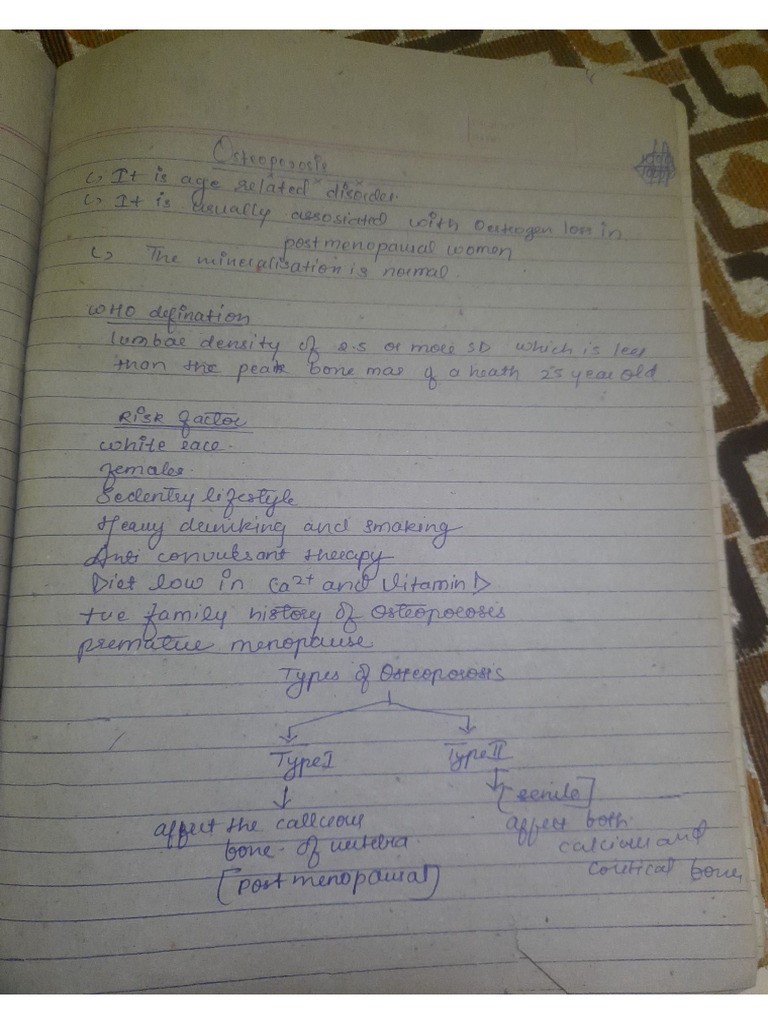 Osteoporosis
↳ It is age related disorder.
↳ It is usually assosiated with Oestrogen loss in
postmenopausal women
↳ The mineralisation is normal.
WHO defination
lumbar density of 2.5 or more SD which is less
than the peak bone mas of a heath 25 year old
Risk factor
white race.
females.
Sedentry lifestyle
Heavy drinking and smaking
Anti convulsant therapy
Diet low in Ca2+ and Vitamin D
+ve family history of Osteoporosis
prematue menopause
Types of Osteoporosis
Type I Type II
[senile]
affect the callcious affect both
bone of vertebra calcious and
[post menopausal] coritical bone